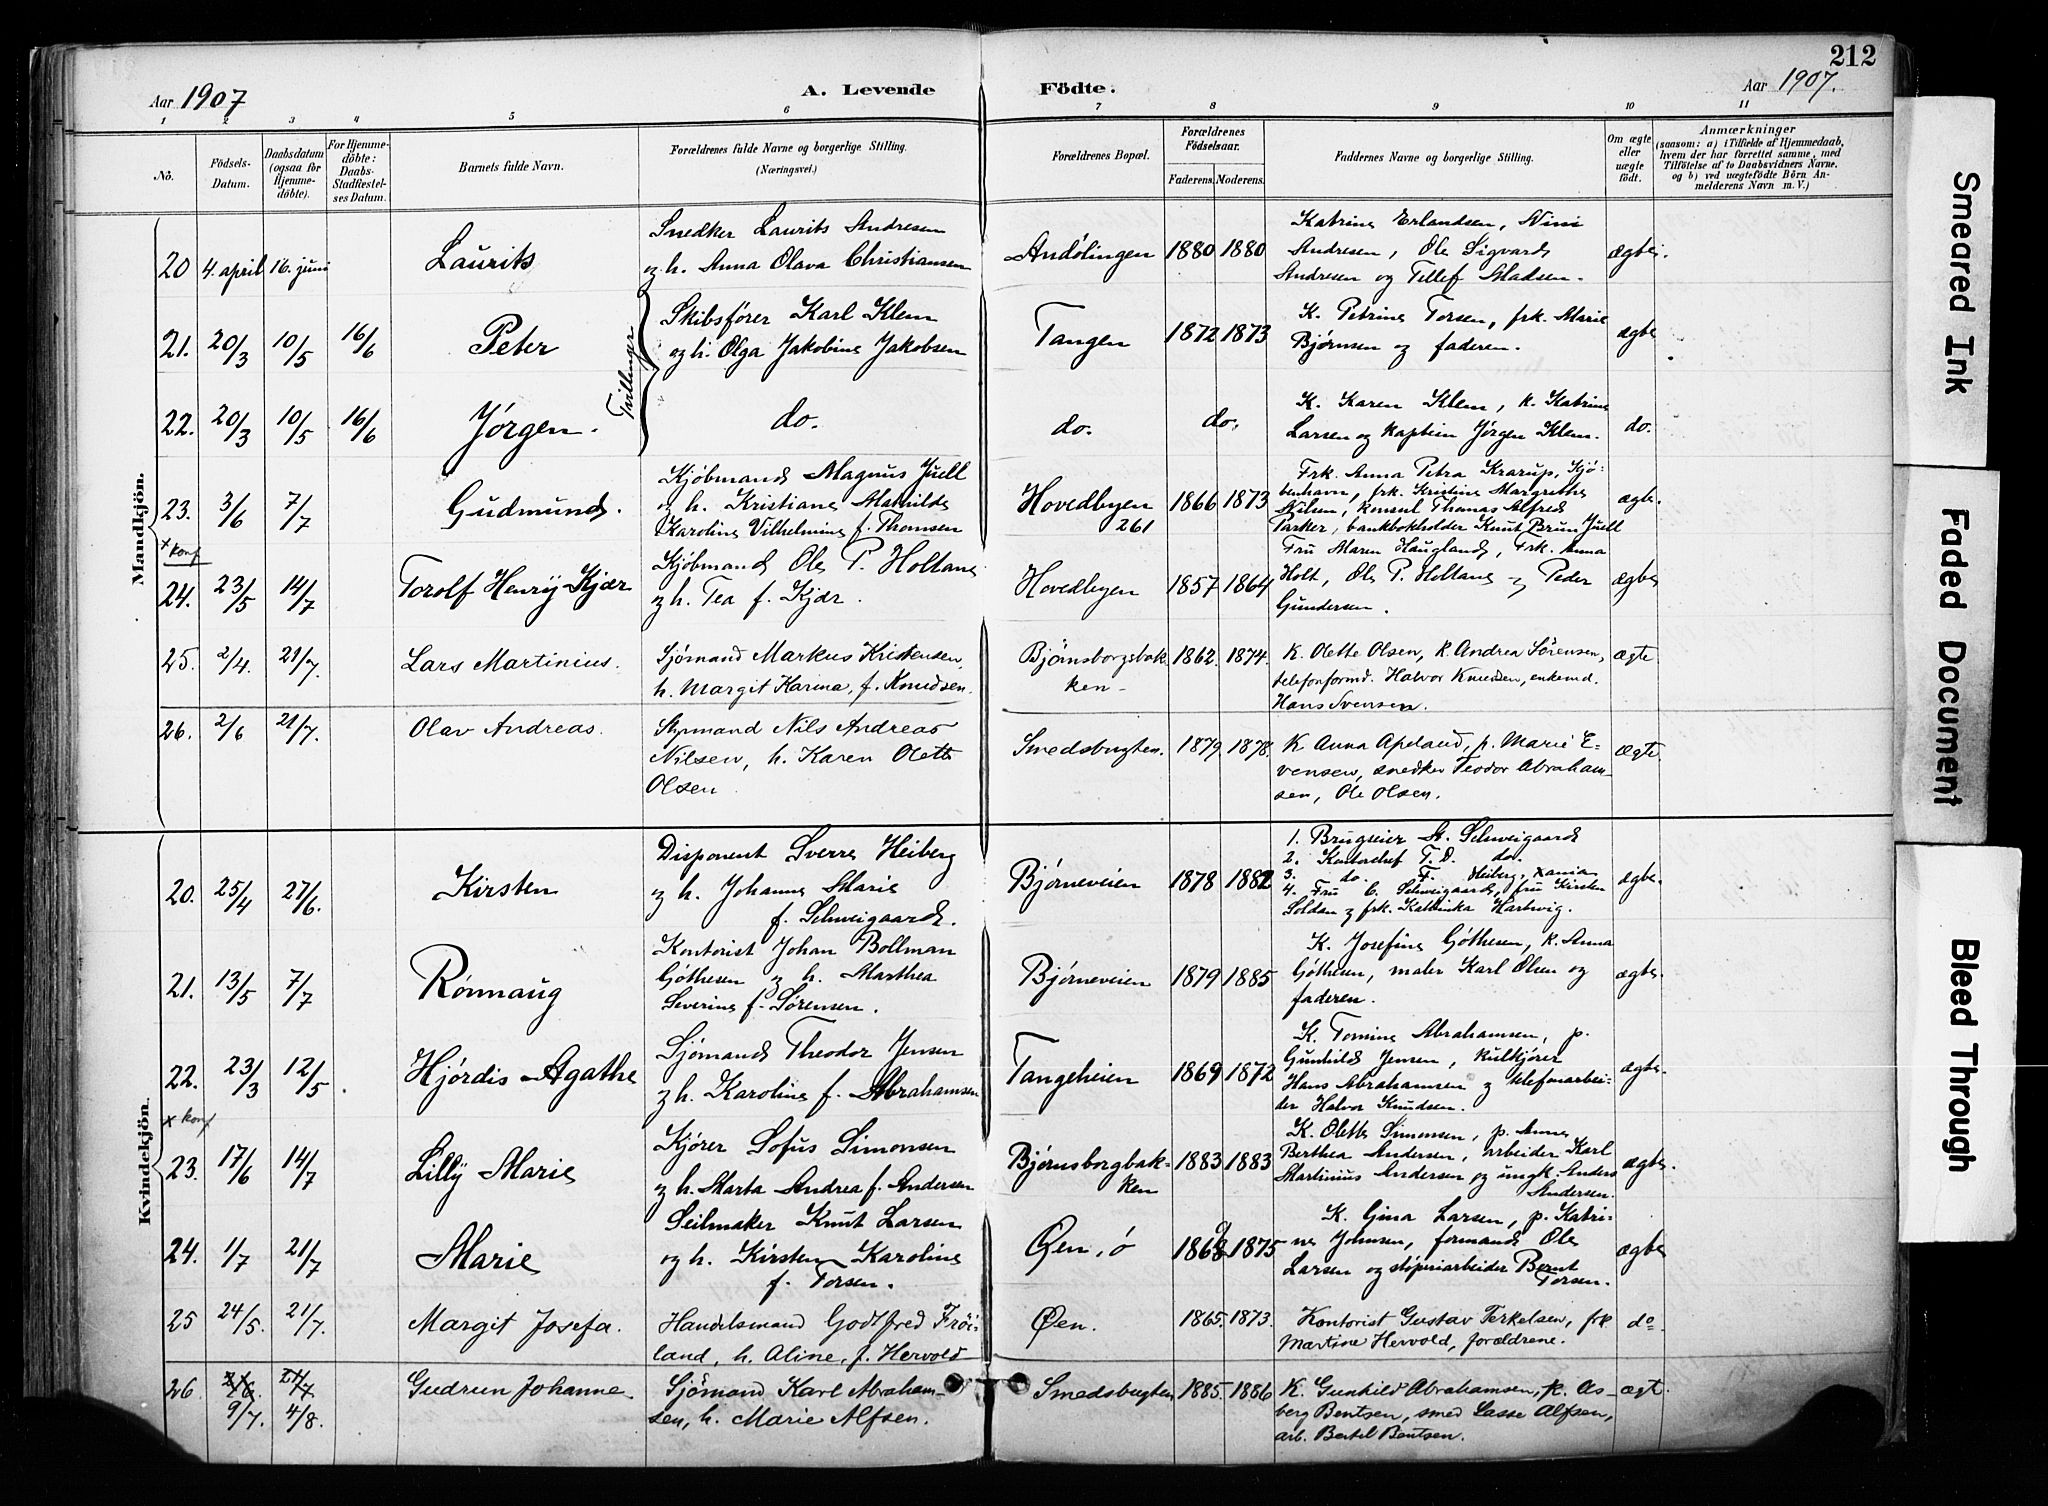 212
Aar 1907
A. Levende
Födte.
Aar 1907.
1 2 3 4 5 6 7 8 9 10 11
No.
Födsels-
Datum.
Daabsdatum
(ogsaa for
Hjemme-
döbte).
For Hjemme-
döbte:
Daabs-
Stadfæstel-
ses Datum.
Barnets fulde Navn.
Forældrenes fulde Navne og borgerlige Stilling.
(Næringsvei.)
Forældrenes Bopæl.
Forældrenes
Födselsaar.
Faderens. Moderens.
Faddernes Navne og borgerlige Stilling.
Om ægte
eller
uægte
födt.
Anmærkninger
(saasom: a) i Tilfælde af Hjemmedaab,
hvem der har forrettet samme, med
Tilföielse af to Daabsvidners Navne.
og b) ved uægtefödte Börn An-
melderens Navn m. V.)
Mandkjön.
20 4. april 16. juni
Laurits
Snedker Laurits Andresen
og h. Anna Olava Christiansen
Andølingen
1880 1880
Katrine Erlandsen, Nini
Andresen, Ole Sigvard
Andresen og Tellef Madsen.
ægte.
21. 20/3 10/5 16/6
Peter
Tvillinger
Skibsfører Karl Klem
og h. Olga Jakobine Jakobsen
Tangen
1872 1873
K. Petrine Torsen, frk. Marie
Bjørnsen og faderen.
ægte
22. 20/3 10/5 16/6
Jørgen.
do.
do.
do.
K. Karen Klem, k. Katrine
Larsen og kaptein Jørgen Klem.
do.
23. 3/6 7/7
Gudmund.
Kjøbmand Magnus Juell
og h. Kristiane Mathilde
Karoline Vilhelmine f. Thomsen
Hovedbyen
261
1866 1873
Frk. Anna Petra Krarup, Kjø-
benhavn, frk. Kristine Margrethe
Nilsen, konsul Thomas Alfred
Parker, bankbokholder Knut Brun Juell
ægte.
x konf
24. 23/5 14/7
Torolf Henry Kjær
Kjøbmand Ole P. Holtane
og h. Tea f. Kjær.
Hovedbyen
1857 1864
Fru Maren Haugland, Frk. Anna
Holt, Ole P. Holtane og Peder
Gundersen.
ægte
25. 2/4. 21/7.
Lars Martinius.
Sjømand Markus Kristensen,
h. Margit Karina, f. Knudsen.
Bjørnsborgsbak-
ken-
1862. 1874.
K. Olette Olsen, k. Andrea Sørensen,
telefonformd. Halvor Knudsen, enkemd.
Hans Svensen.
ægte
26. 2/6 21/7.
Olav Andreas.
Styrmand Nils Andreas
Nilsen, h. Karen Olette
Olsen
Smedsbugten.
1879 1878.
K. Anna Apeland, p. Marie E-
vensen, snedker Teodor Abraham-
sen, Ole Olsen.
ægte.
Kvindekjön.
20. 25/4 27/6.
Kirsten
Disponent Sverre Heiberg
og h. Johanne Marie
f. Schweigaard.
Bjørneveien
1878 1882
1. Brugseier St. Schweigaard
2. Kontorchef T. D. do.
3. do. F. Heiberg, Xania
4. Fru C. Schweigaard, fru Kirsten
Soldan og frk. Kathinka Hartwig.
ægte.
21. 13/5 7/7
Rønnaug
Kontorist Johan Bollman
Gøthesen og h. Marthea
Severine f. Sørensen.
Bjørneveien
1879 1885
K. Josefine Gøthesen, k. Anna
Gøthesen, maler Karl Olsen og
faderen.
ægte.
22. 23/3 12/5
Hjørdis Agathe
Sjømand Theodor Jensen
og h. Karoline f. Abrahamsen
Tangeheien
1869 1872
K. Tomine Abrahamsen, p.
Gunhild Jensen, kulkjører
Hans Abrahamsen og telefonarbei-
der Halvor Knudsen.
ægte.
x konf
23. 17/6 14/7
Lilly Marie
Kjører Sofus Simonsen
og h. Marta Andrea f. Andersen
Bjørnsborgbak-
ken
1883 1883
K. Olette Simonsen, p. Anne
Berthea Andersen, arbeider Karl
Martinius Andersen og ungk. Anders
Andersen.
ægte.
24. 1/7 21/7
Marie
Seilmaker Knut Larsen
og h. Kirsten Karoline
f. Torsen.
Øen, ø
1868 1875
K. Gina Larsen, p. Katri-
ne Johnsen, formand Ole
Larsen og støperiarbeider Bernt
Torsen.
ægte
25 24/5. 21/7.
Margit Josefa.
Handelsmand Godtfred Frøi-
land, h. Aline, f. Hervold
Øen.
1865. 1873.
Kontorist Gustav Terkelsen, frk
Martine Hervold, forældrene.
do
26 9/7. 4/8.
Gudrun Johanne.
Sjømand Karl Abraham-
sen, h. Marie Alfsen.
Smedsbugten
1885. 1886
K. Gunhild Abrahamsen, k. As-
berg Bentsen, smed Lasse Alfsen,
arb. Bertel Bentsen.
ægt.
Smeared Ink
Faded Document
Bleed Through